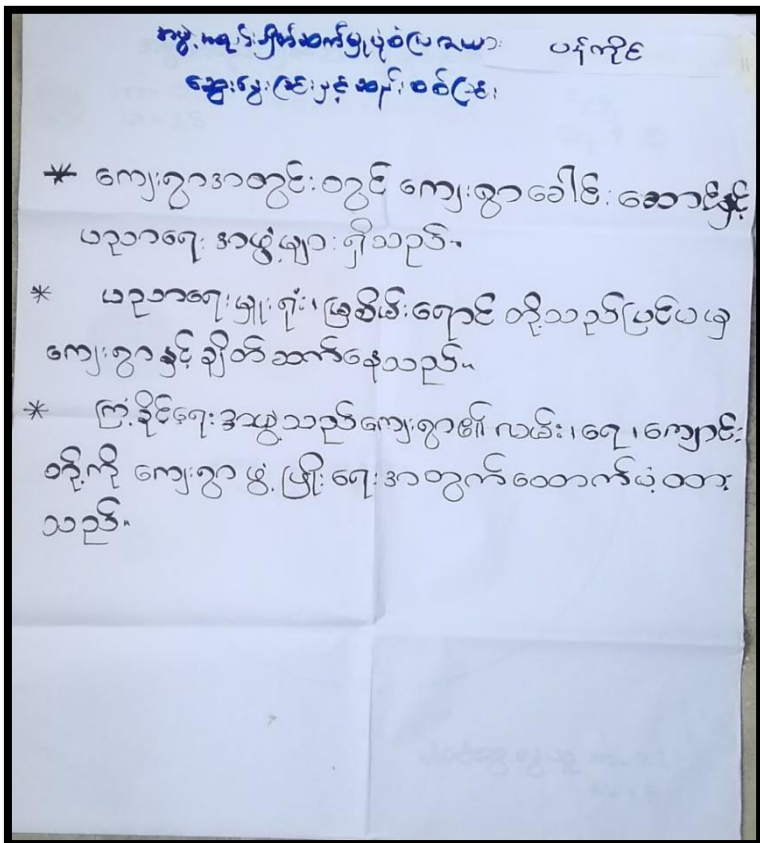 အဖွဲ့အစည်းချိတ်ဆက်မှုပုံစံပြဇယား ပန်ကိုင်
ဆွေးနွေးခြင်းနှင့်ဆန်းစစ်ခြင်း
* ကျေးရွာအတွင်းတွင် ကျေးရွာခေါင်းဆောင်နှင့်
ပညာရေးအဖွဲ့များရှိသည်။
* ပညာရေးမှူးရုံး၊ မြစိမ်းရောင် တို့သည်ပြင်ပမှ
ကျေးရွာနှင့်ချိတ်ဆက်နေသည်။
* ကြံ့ခိုင်ရေးအဖွဲ့သည်ကျေးရွာ၏လမ်း၊ရေ၊ကျောင်း
တို့ကို ကျေးရွာဖွံ့ဖြိုးရေးအတွက်ထောက်ပံ့ထား
သည်။